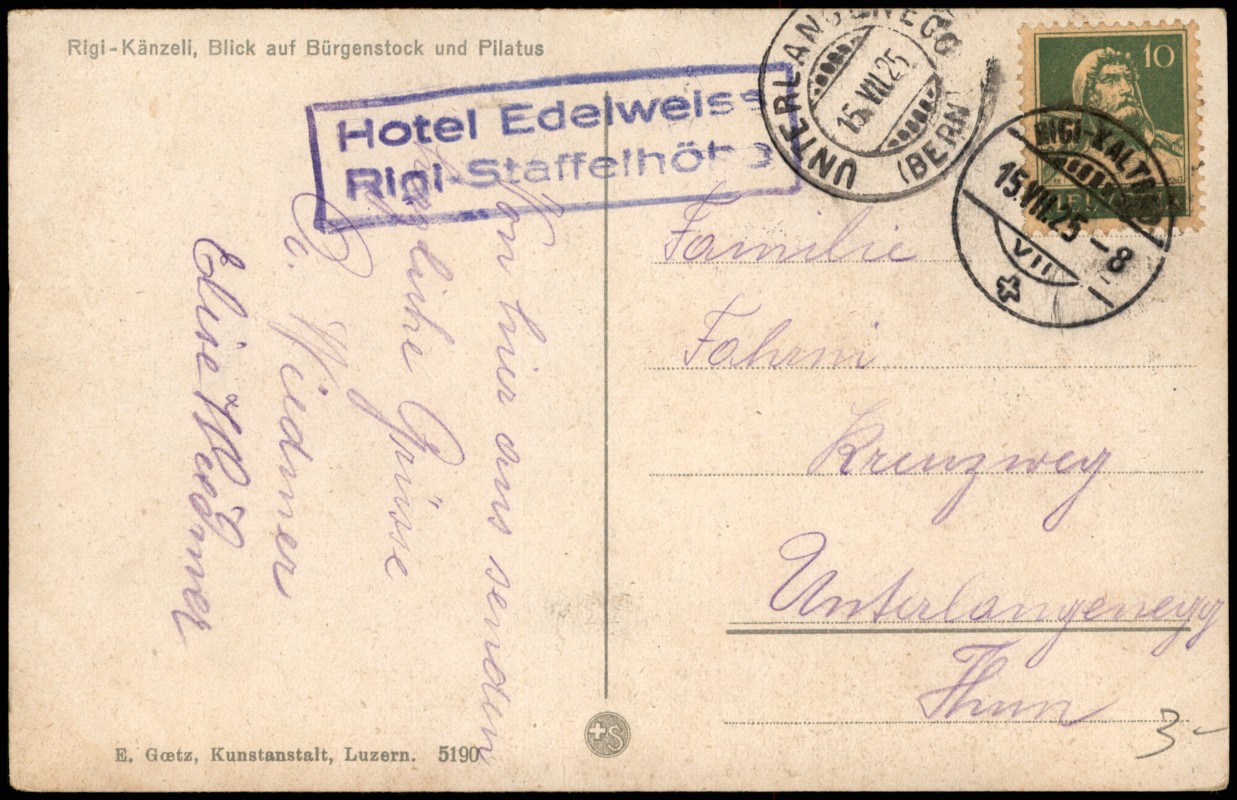 Rigi-Känzeli, Blick auf Bürgenstock und Pilatus
Hotel Edelweiss
Rigi-Staffelhöhe
UNTERLANGENEGG
15.VII.25
(BERN)
10
HELVETIA
RIGI-KALTBAD
15.VII.25-8
VII
Von hier aus senden
herzliche Grüsse
Wiedmer
Elise Wiedmer
Familie
Fahrni
Kreuzweg
Unterlangenegg
Thun
3-
E. Gœtz, Kunstanstalt, Luzern. 5190
S